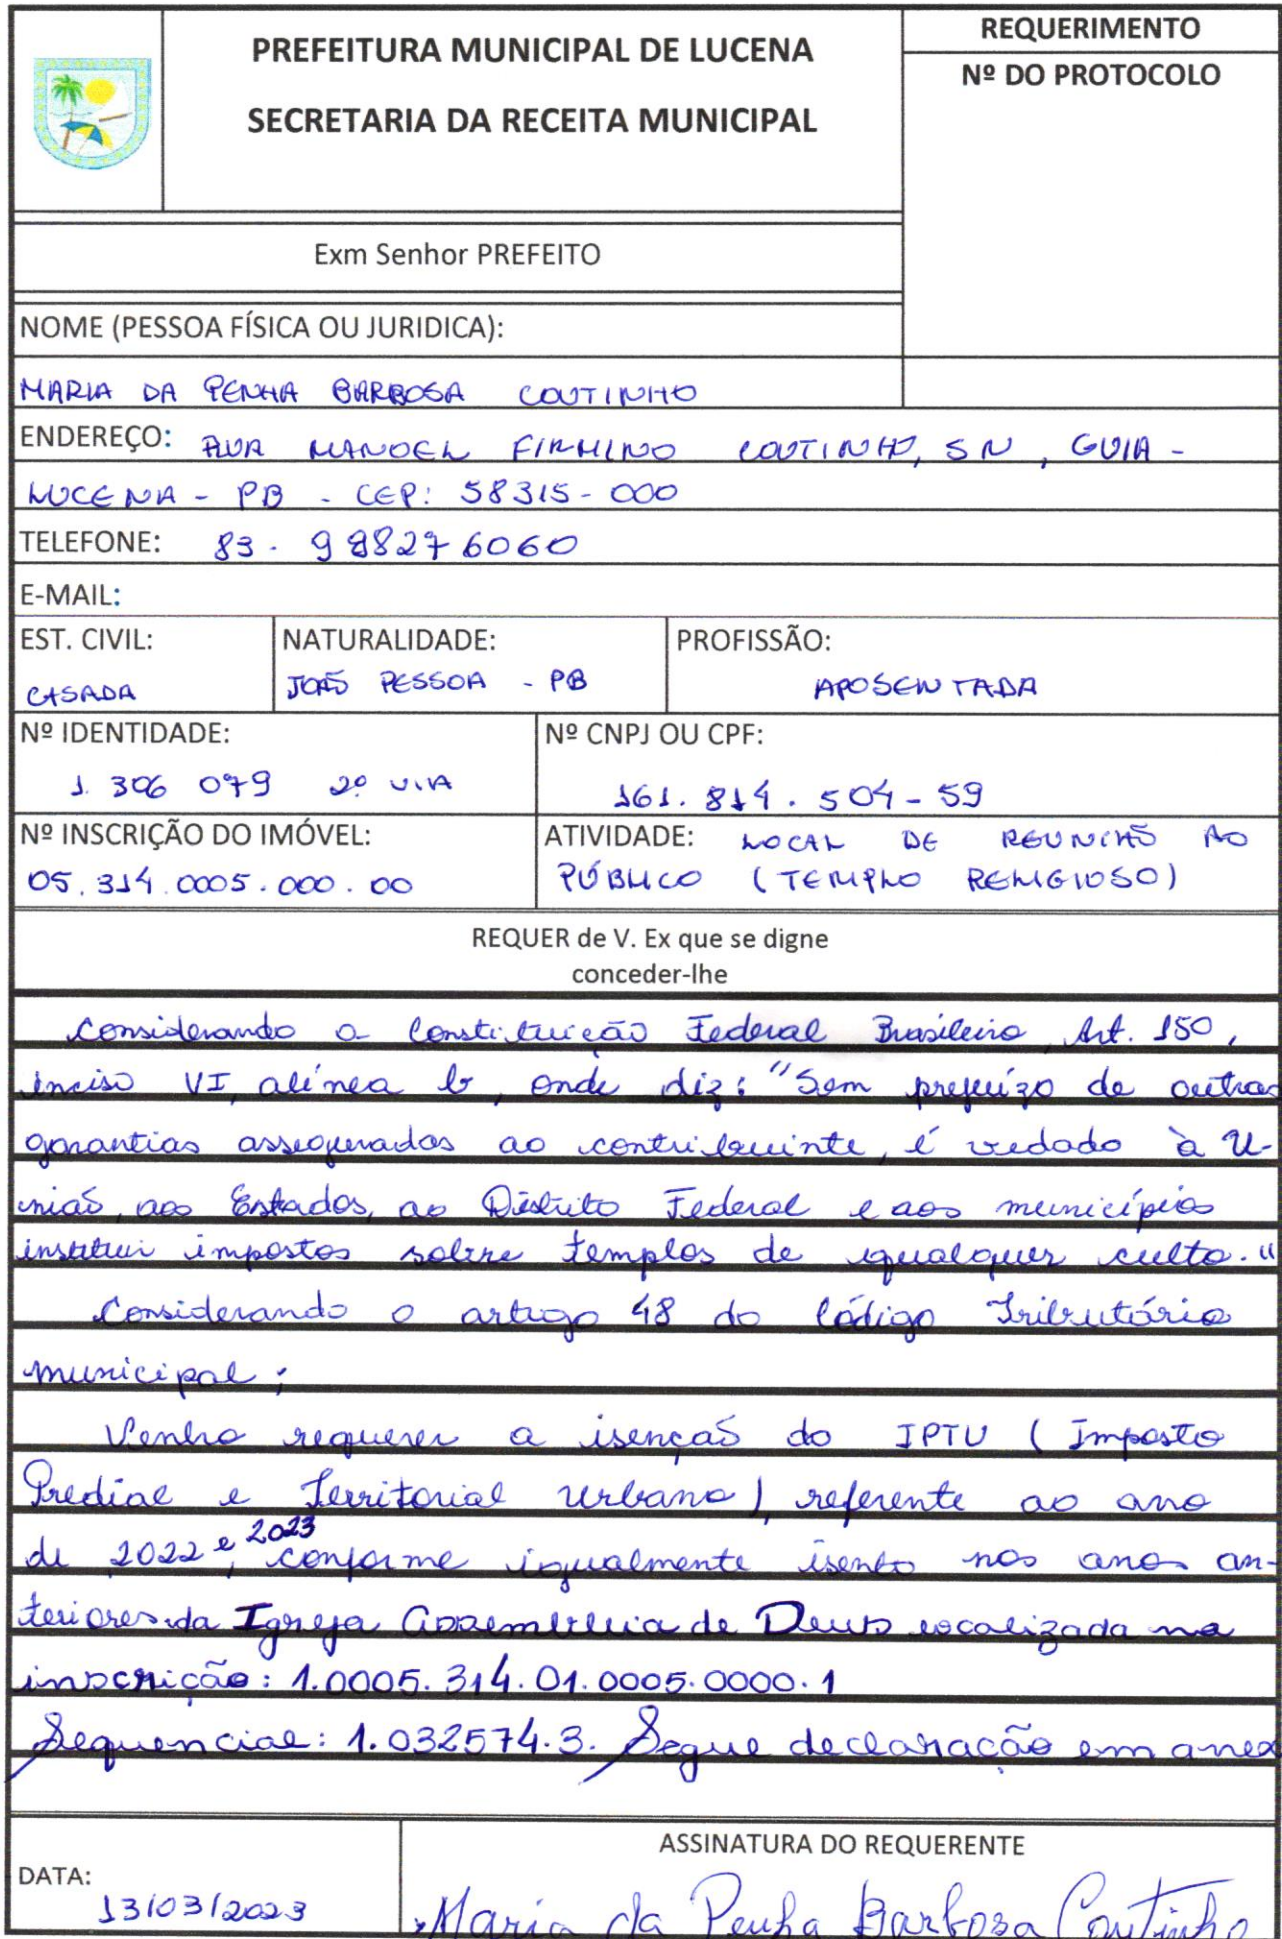 PREFEITURA MUNICIPAL DE LUCENA
SECRETARIA DA RECEITA MUNICIPAL
REQUERIMENTO
Nº DO PROTOCOLO
Exm Senhor PREFEITO
NOME (PESSOA FÍSICA OU JURIDICA):
MARIA DA PENHA BARBOSA COUTINHO
ENDEREÇO: RUA MANOEL FIRMINO COUTINHO, SN, GUIA -
LUCENA - PB - CEP: 58315-000
TELEFONE: 83. 998276060
E-MAIL:
EST. CIVIL: NATURALIDADE: PROFISSÃO:
CASADA JOÃO PESSOA - PB APOSENTADA
Nº IDENTIDADE: Nº CNPJ OU CPF:
1. 306 079 2º VIA 161. 814. 504-59
Nº INSCRIÇÃO DO IMÓVEL: ATIVIDADE: LOCAL DE REUNIÃO AO
05. 314. 0005. 000. 00 PÚBLICO (TEMPLO RELIGIOSO)
REQUER de V. Ex que se digne
conceder-lhe
Considerando a Constituição Federal Brasileira, Art. 150,
inciso VI, alínea b, onde diz: "Sem prejuízo de outras
garantias asseguradas ao contribuinte, é vedado à U-
nião, aos Estados, ao Distrito Federal e aos municípios
instituir impostos sobre templos de qualquer culto."
Considerando o artigo 48 do Código Tributário
municipal;
Venho requerer a isenção do IPTU (Imposto
Predial e Territorial Urbano), referente ao ano
de 2022 e 2023, conforme igualmente isento nos anos an-
teriores da Igreja Assembleia de Deus localizada na
inscrição: 1.0005.314.01.0005.0000.1
Sequencial: 1.032574.3. Segue declaração em anexo
DATA: ASSINATURA DO REQUERENTE
13/03/2023 Maria da Penha Barbosa Coutinho